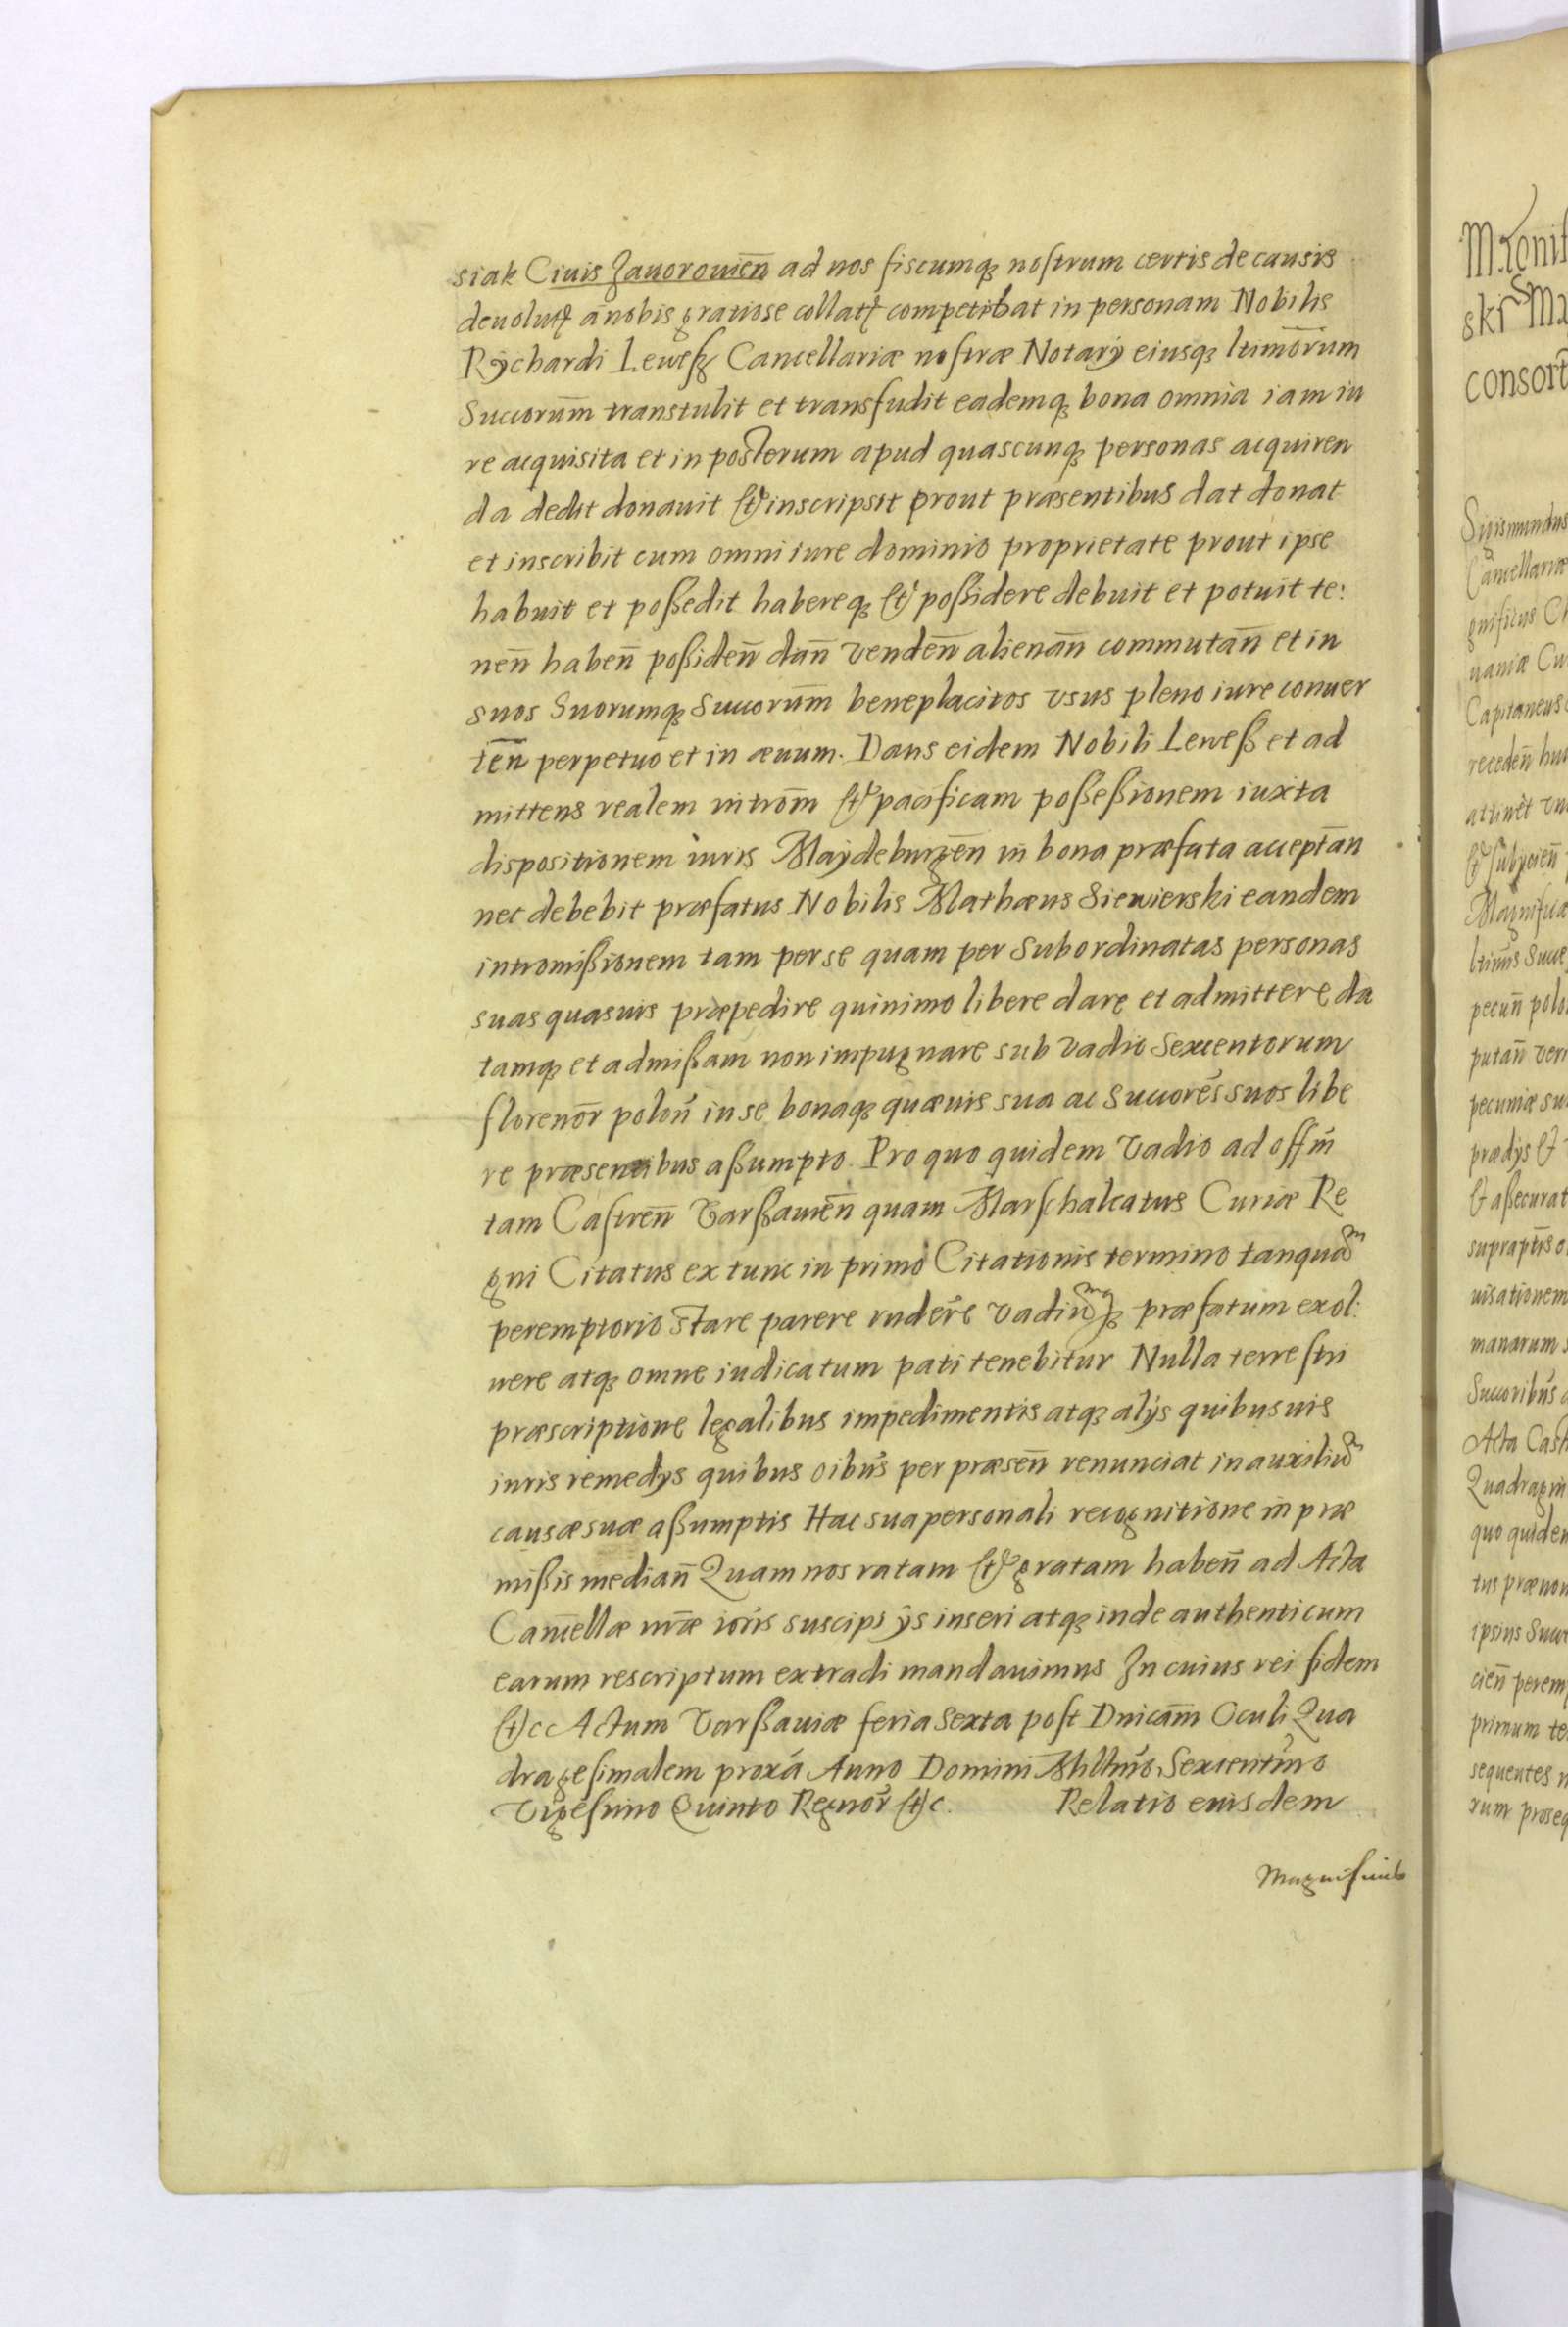 siak Ciuis Jauorouien̄ ad nos fiscumq3 nostrum certis de causis
deuolutꝭ a nobis gratiose collatꝭ competebat in personam Nobilis
Rychardi Leweß Cancellariæ nostræ Notarÿ eiusq3 ltimōrum
Succorum̄ transtulit et transfudit eademq3 bona omnia iam iu
re acquisita et in posterum apud quascunq3 personas acquiren
da dedit donauit et inscripsit prout præsentibus dat donat
et inscribit cum omni iure dominio proprietate prout ipse
habuit et poßedit habereq3 et poßidere debuit et potuit te:
nen̄ haben̄ poßiden̄ dan̄ venden̄ alienan̄ commutan̄ et in
suos Suorumq3 Succorum̄ beneplacitos vsus pleno iure conuer
ten̄ perpetuo et in æuum. Dans eidem Nobili Leweß et ad
mittens realem introm̄ et pacificam poßeßionem iuxta
dispositionem iuris Maÿdeburgen̄ in bona præfata acceptan̄
nec debebit præfatus Nobilis Mathæus Siewierski eandem
intromißionem tam per se quam per Subordinatas personas
suas quasuis præpedire quinimo libere dare et admittere da
tamq3 et admißam non impugnare sub vadio Sexcentorum
florenor̄ polon̄ in se bonaq3 quæuis sua ac Succores̄ suos libe
re præsentibus aßumpto. Pro quo quidem Vadio ad offm̄
tam Castren̄ Varßauien̄ quam Marschalcatus Curiæ Re
gni Citatus ex tunc in primo Citationis termino tanquam
peremptorio stare parere rndēre vadiumq3 præfatum exol:
uere atq3 omne iudicatum pati tenebitur Nulla terrestri
præscriptione legalibus impedimentis atq3 alÿs quibusuis
iuris remedÿs quibus oibūs per præsen̄ renunciat in auxilium
causæ suæ aßumptis Hac sua personali recognitione in præ
mißis median̄ Quam nos ratam et gratam haben̄ ad Acta
Cancellæ nr̄æ ioris suscipi ÿs inseri atq3 inde authenticum
earum rescriptum extradi mandauimus In cuius rei fidem
etc Actum Varßauiæ feria Sexta post Dnicam̄ Oculi Qua
dragesimalem proxā Anno Domini Mill̄mo Sexcentmō
Vigesimo Quinto Regnor̄ etc. Relatio eiusdem
Magnifici
M. Conis
ski Ma
consort
Sigismundus
Cancellariæ
gnificus Ch
uaniæ Cu
Capitaneus
receden̄ hu
attinet
et subÿcien̄
Magnifica
ltimis Succe
pecun̄ polo
putan̄ ver
pecuniæ su
prædÿs et
et aßecurat
supraptīs o
uisationem
manarum s
Succoribus̄ a
Acta Cast
Quadragin
quo quidem
tus prænom
ipsius Succe
cien̄ perem
primum te
sequentes n
rum proseq